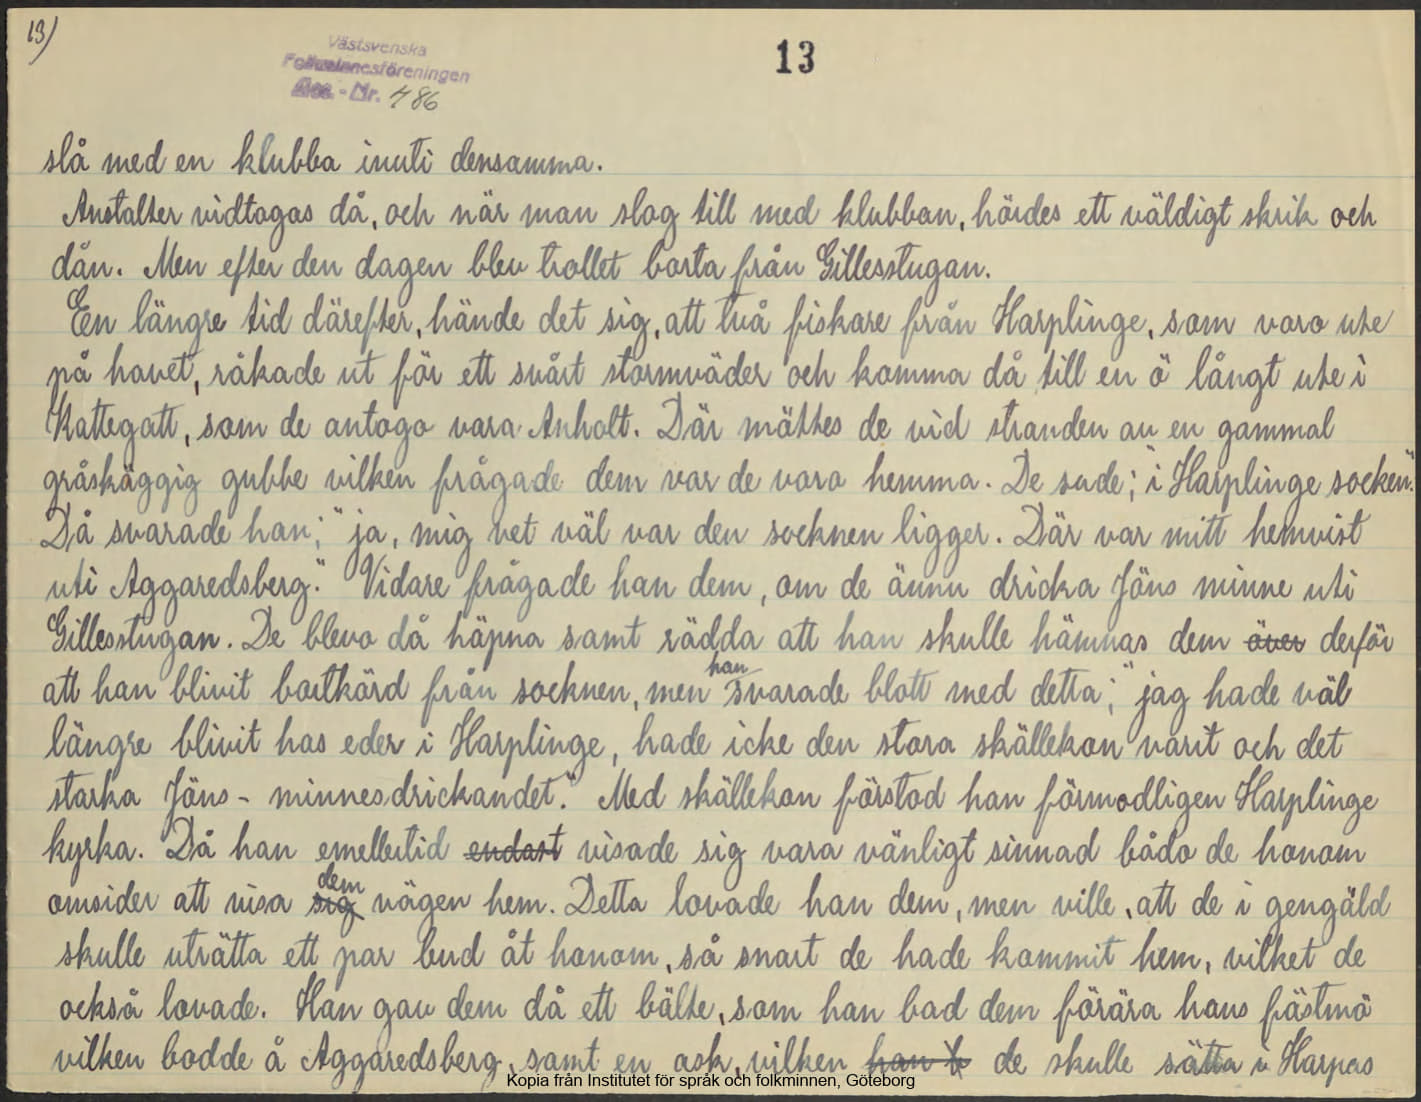 13)
Västsvenska
Folkminnesföreningen
Acc. - Nr. 486
13
slå med en klubba inuti densamma.
Anstalter vidtagas då, och när man slog till med klubban, hördes ett väldigt skrik och
dån. Men efter den dagen blev trollet borta från Gillesstugan.
En längre tid därefter, hände det sig, att två fiskare från Harplinge, som voro ute
på havet, råkade ut för ett svårt stormväder och komma då till en ö långt ute i
Kattegatt, som de antogo vara Anholt. Där möttes de vid stranden av en gammal
gråskäggig gubbe vilken frågade dem var de voro hemma. De sade; "i Harplinge socken".
Då svarade han; "ja, mig vet väl var den socknen ligger. Där var mitt hemvist
uti Aggaredsberg." Vidare frågade han dem, om de ännu dricka Jöns minne uti
Gillesstugan. De blevo då häpna samt rädda att han skulle hämnas dem över derför
att han blivit bortkörd från socknen, men han svarade blott med detta; "jag hade väl
längre blivit hos eder i Harplinge, hade icke den stora skällekon varit och det
starka Jöns - minnesdrickandet." Med skällekon förstod han förmodligen Harplinge
kyrka. Då han emellertid endast visade sig vara vänligt sinnad bådo de honom
omsider att visa sig dem vägen hem. Detta lovade han dem, men ville, att de i gengäld
skulle uträtta ett par bud åt honom, så snart de hade kommit hem, vilket de
också lovade. Han gav dem då ett bälte, som han bad dem förära hans fästmö
vilken bodde å Aggaredsberg, samt en ask, vilken han b de skulle sätta i Harpas
Kopia från Institutet för språk och folkminnen, Göteborg